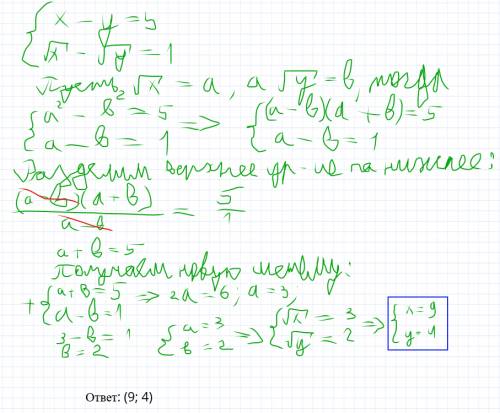 { x - y = 5
{ √x - √y = 1
Пусть √x = a, а √y = b, тогда
{ a² - b² = 5 => { (a - b)(a + b) = 5
{ a - b = 1 { a - b = 1
Разделим верхнее ур-ие на нижнее:
(a - b)(a + b) / a - b = 5/1
a + b = 5
Получаем новую систему:
+ { a + b = 5 => 2a = 6; a = 3,
{ a - b = 1
3 - b = 1
b = 2
{ a = 3 => { √x = 3 => { x = 9
{ b = 2 { √y = 2 { y = 4
Ответ: (9; 4)